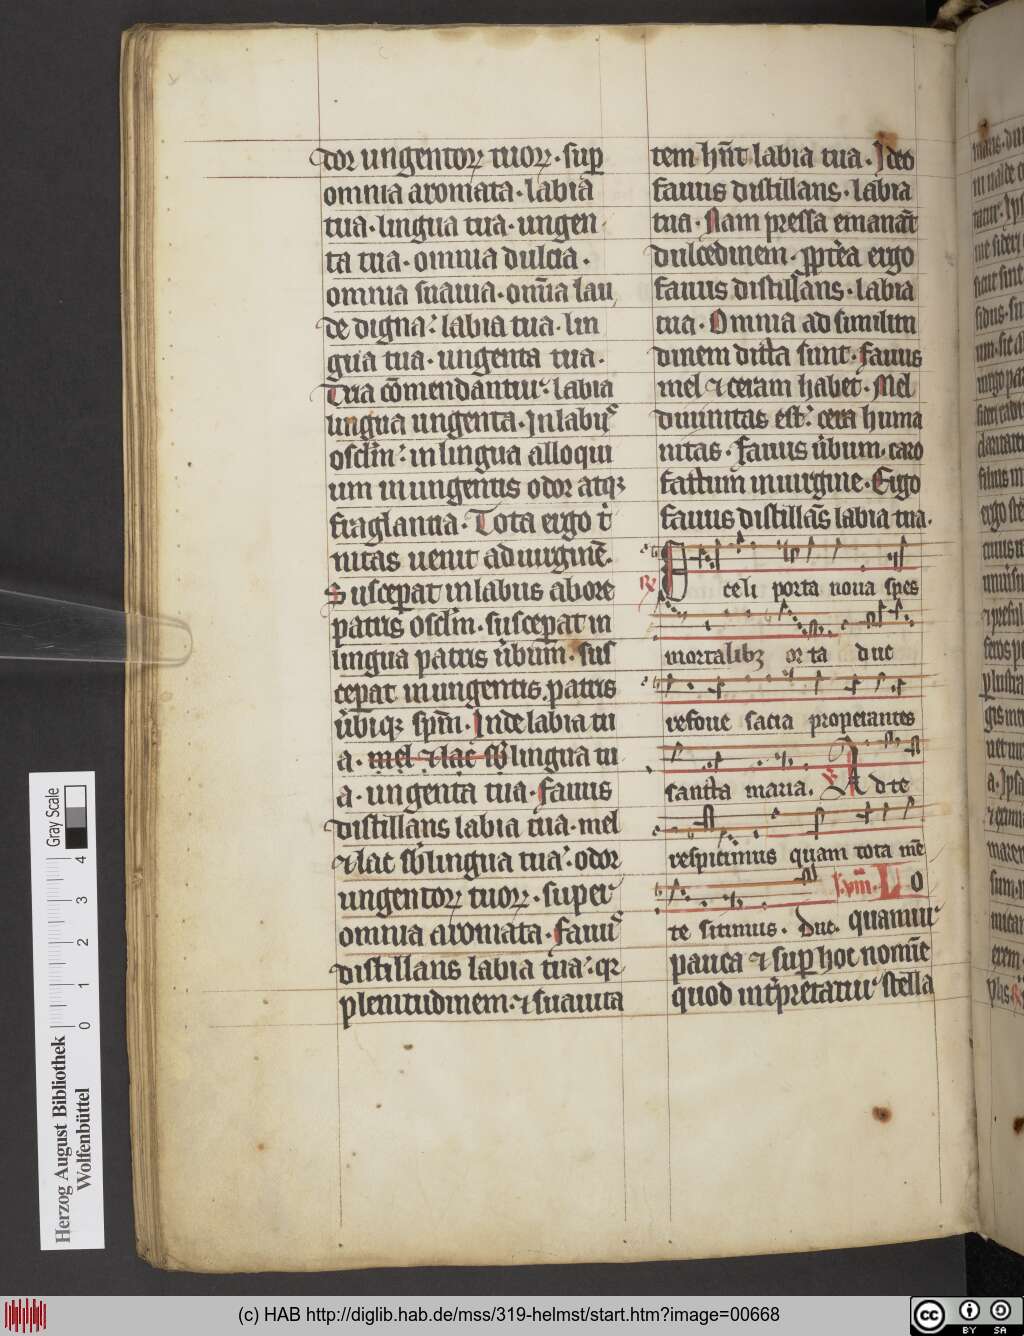 dor ungentoꝝ tuoꝝ · sup̱
omnia aromata · labia
tua · lingua tua · ungen
ta tua · omnia dulcia ·
omnia suauia · om̄ia lau
de digna · labia tua · lin
gua tua · ungenta tua ·
Tua cōmendantur · labia
lingua ungenta · In labijs
osclm̄ · in lingua alloqui
um in ungentis odor atqꝫ
fraglantia · Tota ergo t̓
nitas uenit ad uirginē ·
Susceperat in labiis ab ore
patris osclm̄ · susceperat in
lingua patris u̓bum · sus
ceperat in ungentis patris
u̓biqꝫ spm̄ · Inde labia tu
a · mel ⁊ lac sb̓ lingua tu
a · ungenta tua · fauus
distillans labia tua · mel
⁊ lac sb̓ lingua tua · odor
ungentoꝝ tuoꝝ · super
omnia aromata · fauus
distillans labia tua · qꝛ
plenitudinem · ⁊ suauita
tem hn̄t labia tua · Ideo
fauus distillans · labia
tua · Nam pressa emanant
dulcedinem · ꝓpterea ergo
fauus distillans · labia
tua · Omnia ad similitu
dinem dicta sunt · fauus
mel ⁊ ceram habet · Mel
diuinitas est · cera huma
nitas · fauus u̓bum · caro
factum in uirgine · Ergo
fauus distillās labia tua ·
celi porta noua spes
mortalibꝫ orta due
refoue sacia properantes
sancta maria · Ad te
respicimus quam tota mē
te sitimus · Due · quamuis
pauca ⁊ sup̱ hoc nomīe
quod int̓pretatur stella
Herzog August Bibliothek
Wolfenbüttel
0 1 2 3 4
Gray Scale
(c) HAB http://diglib.hab.de/mss/319-helmst/start.htm?image=00668
cc BY SA